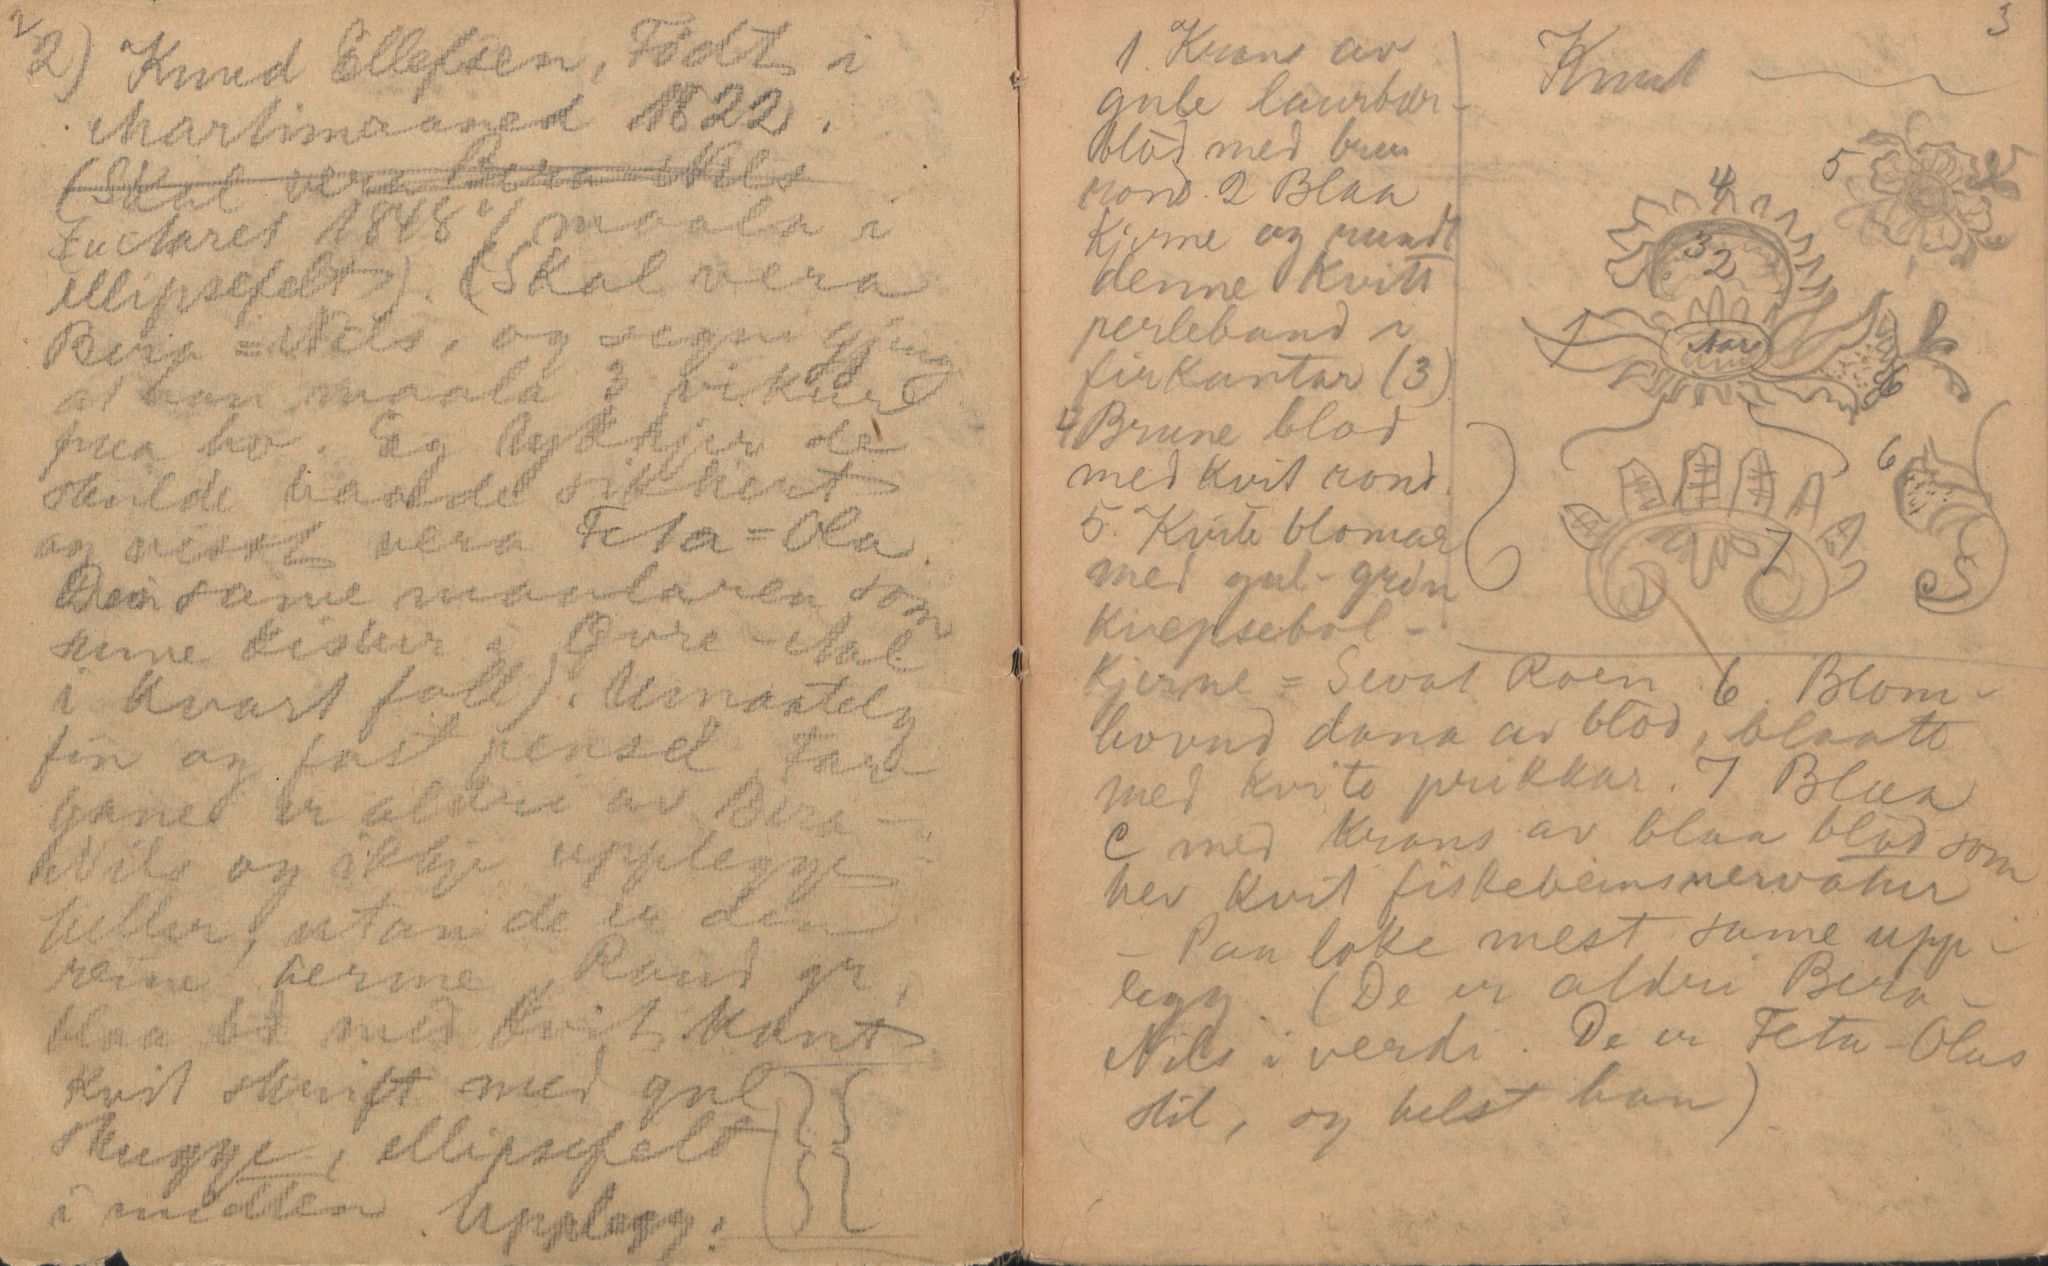 2
2) Knud Ellefsen, Født i
Martimaaned 1822.
(Skal vera Bera Nils
Aaret 1848 maala i
ellipsefelt). (Skal vera
Bera = Nils, og segn gjeng
at han maala 3 vikur
paa ho. Eg tykkjer de
skulde baade sikkert
og visst vera Feta = Ola.
Den same maalaren som
sume kistur i Øvre-Aal
i kvart fall). Umaateleg
fin og fast pensel. Far
gane er aldri av Bera-
Nils og ikkje upplegge
heller, utan de er den
reine Rand gr,
blaa bd med kvit kant
kvit skrift med gul
skugge, ellipsefelt
i midten. Upplegg:
3
Knut
1 Krans av
gule laurbær-
blød med brun
rond. 2 Blaa
kjerne og rundt
denne kvitt
perleband i
firkantar (3)
4 Brune blod
med kvit rond.
5. Kvite blomar
med gul-grøn
kvepsebol-
kjerne = Sevat Roen. 6. Blom-
hovud dana av blod, blaatt
med kvite prikkar. 7 Blaa
C med krans av blaa blød som
hev kvit fiskebeinsnervatur
- Paa loke mest same upp-
legg. (De er aldri Bera-
Nils i verdi. De er Feta-Olas
stil, og helst han)
5
4
3
2
1
Aar
6
6
7